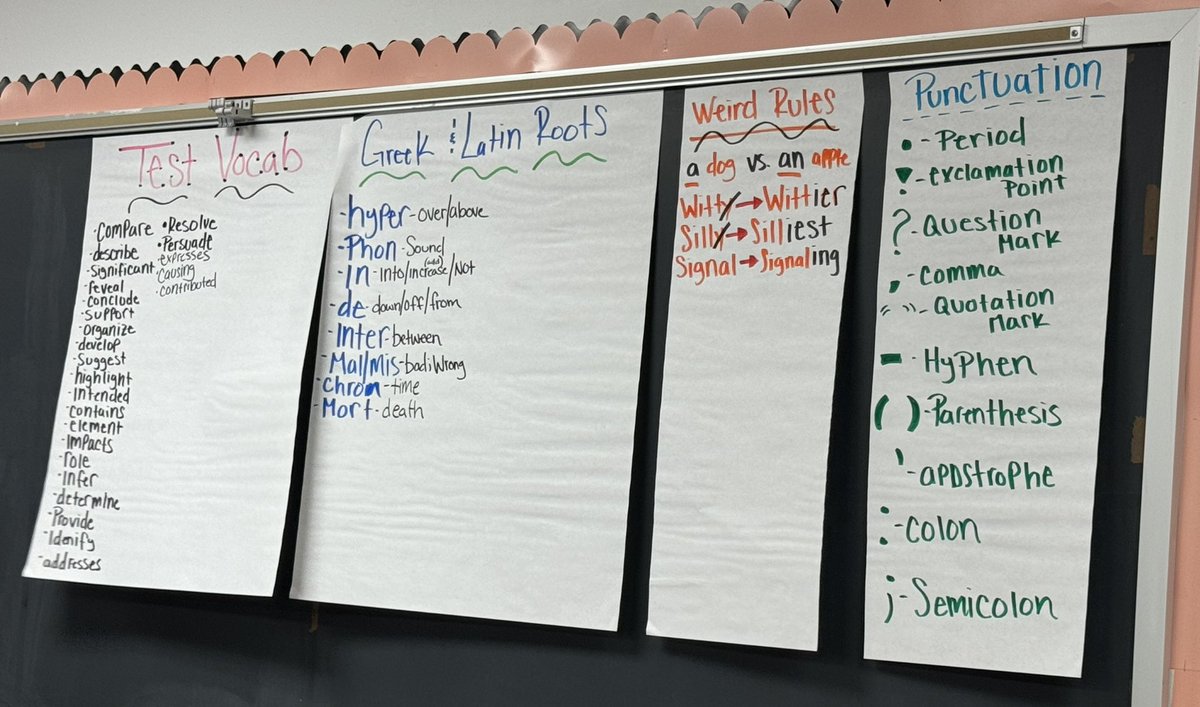 Test Vocab
-Compare
-describe
-Significant
-reveal
-conclude
-Support
-organize
-develop
-Suggest
-highlight
-Intended
-contains
-element
-Impacts
-role
-Infer
-determine
-Provide
-Idenify
-addresses
•Resolve
•Persuade
·expresses
·Causing
·contributed
Greek & Latin Roots
-hyper-over/above
-Phon-Sound
-In-Into/Increase/Not
(add)
-de-down/off/from
-Inter-between
-Mal/Mis-bad;Wrong
-Chron-time
-Mort-death
Weird Rules
a dog vs. an apple
Witty→Wittier
Silly→Silliest
Signal→Signaling
Punctuation
. - Period
! - exclamation
Point
? - Question
Mark
, - comma
" " - Quotation
Mark
- - Hyphen
( ) - Parenthesis
' - apostrophe
: - colon
; - Semicolon